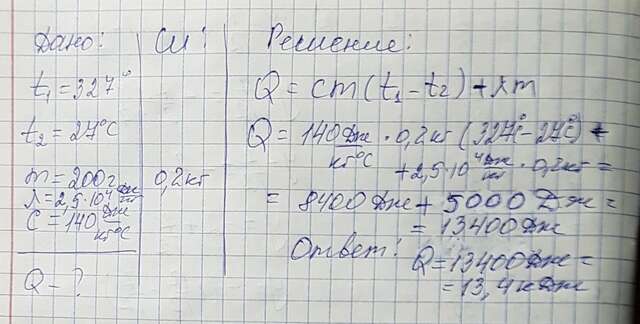 Дано:
t₁=327°
t₂=27°C
m=200г
λ=2,5·10⁴ Дж/кг
C=140 Дж/кг°C
Q-?
СИ:
0,2кг
Решение:
Q=cm(t₁-t₂)+λm
Q=140 Дж/кг°C·0,2кг(327°-27°C)+
+2,5·10⁴ Дж/кг·0,2кг=
=8400Дж+5000Дж=
=13400Дж
Ответ: Q=13400Дж=
=13,4кДж